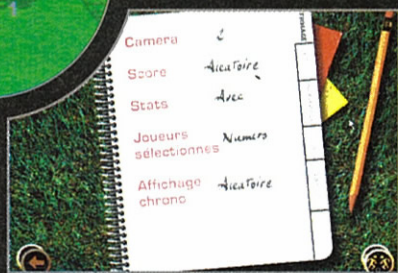 1
Camera 2
Score Aleatoire
Stats Avec
Joueurs
sélectionnes Numero
Affichage Aleatoire
chrono